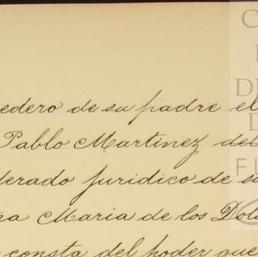 edero de su padre el
Pablo Martinez del
derado juridico de su
ra Maria de los Dolo
consta del poder que